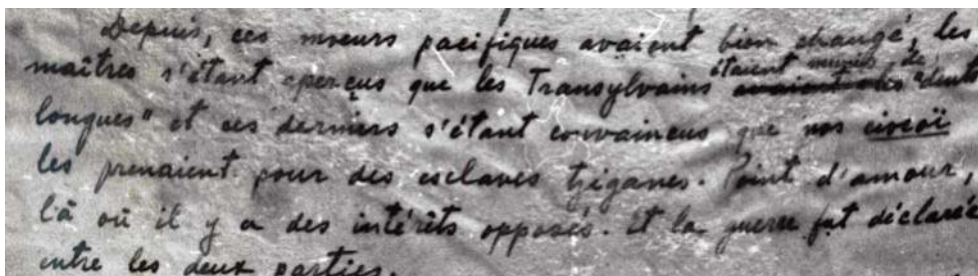 Depuis, ces moeurs pacifiques avaient bien changé, les
maîtres s'étant aperçus que les Transylvains étaient munis de "dents
longues" et ces derniers s'étant convaincus que nos ciocoï
les prenaient pour des esclaves tziganes. Point d'amour,
là où il y a des intérêts opposés. Et la guerre fut déclarée
entre les deux parties.